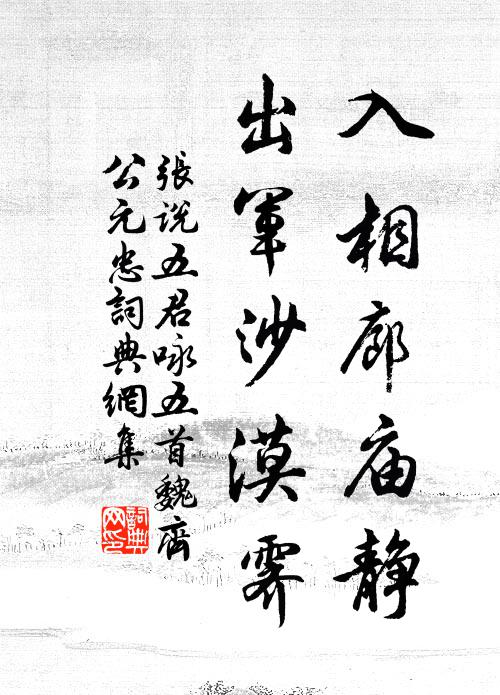 入相廊庙静
出军沙漠霁
張说五君咏五首魏齊
公元忠詞典網集
詞典
网印